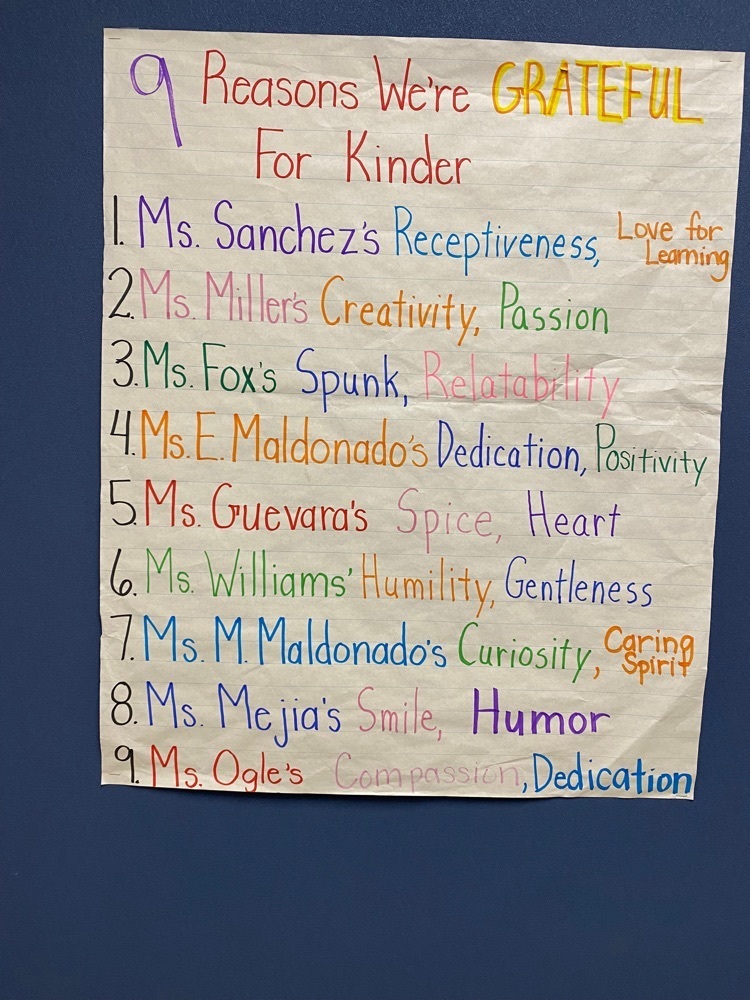 9 Reasons We're GRATEFUL
For Kinder
1. Ms. Sanchez's Receptiveness, Love for Learning
2. Ms. Miller's Creativity, Passion
3. Ms. Fox's Spunk, Relatability
4. Ms. E. Maldonado's Dedication, Positivity
5. Ms. Guevara's Spice, Heart
6. Ms. Williams' Humility, Gentleness
7. Ms. M. Maldonado's Curiosity, Caring Spirit
8. Ms. Mejia's Smile, Humor
9. Ms. Ogle's Compassion, Dedication